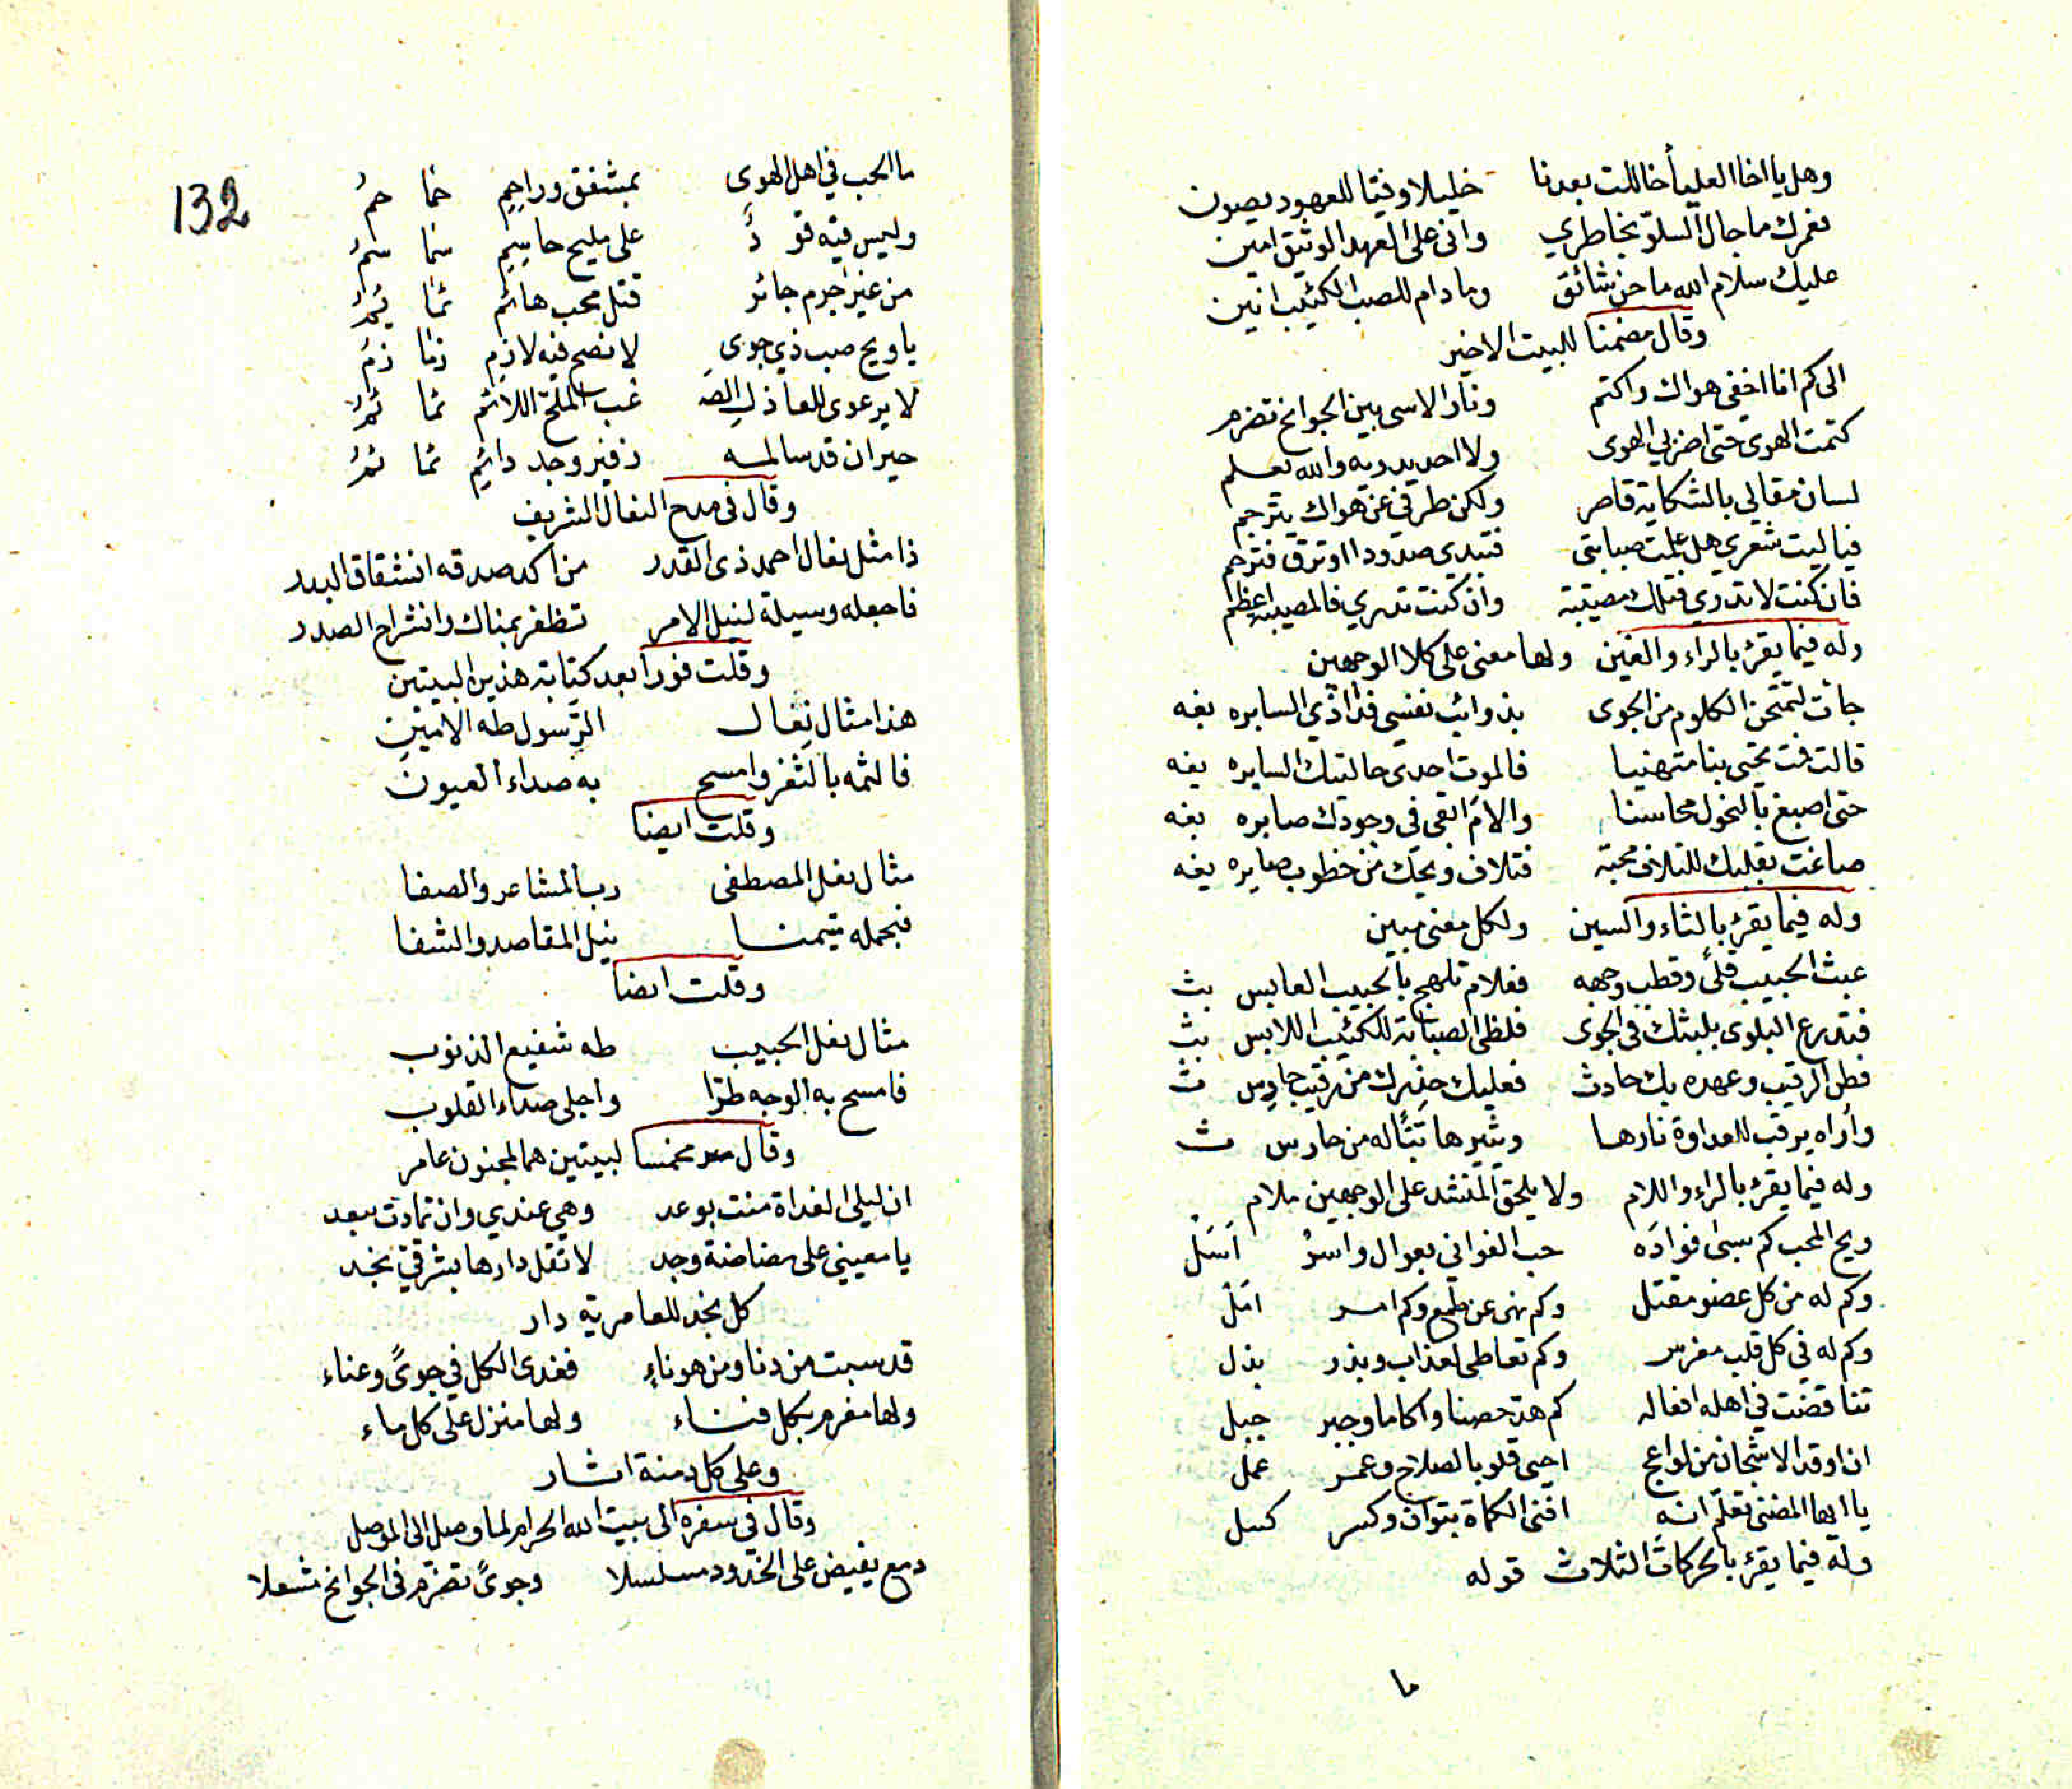 وهل يا اخا العليا أخاللت بعدنا خليلا وفيّا للعهود يصون
لعمرك ما جال السلوّ بخاطري واني على العهد الوثيق امين
عليك سلام الله ما حن شائق وما دام للصب الكئيب انين
وقال مضمنا للبيت الاخير
الى كم انا اخفي هواك واكتم ونار الاسى بين الجوانح تضرم
كتمت الهوى حتى اضر بي الهوى ولا احد يدريه والله يعلم
لسان مقالي بالشكاية قاصر ولكن طرفي عن هواك يترجم
فيا ليت شعري هل علمت صبابتي فتبدي صدودا او ترق فترحم
فان كنت لا تدري فتلك مصيبة وان كنت تدري فالمصيبة اعظم
وله فيما يقرؤ بالراء والغين ولها معنى على كلا الوجهين
جأت لتمتحن الكلوم من الجوى بذوائب نفسي فدا ذي السابره بغه
قالت فمت محتى بنا متهنيا فالموت احدى حالتيك السايره يغه
حتى اصبغ بالنحول محاسنا والام ابقى في وجودك صابره بغه
صاغت بقلبك للتلاف محبة فتلاف ويحك من خطوب صايره يغه
وله فيما يقرؤ بالثاء والسين ولكل معنى مبين
عبث الحبيب قلىً وقطب وجهه فعلام تلهج بالحبيب العابس بث
فتدرع البلوى بلبثك في الجوى فلظى الصبابة للكئيب اللابس بث
فطن الرقيب وعهده بك حادث فعليك حذرك من رقيب حادس ث
وأراه يرقب للعداوة نارها ويثيرها تبّا له من حارس ث
وله فيما يقرؤ بالراء واللام ولا يلحق المنشد على الوجهين ملام
ويح المحب كم سبى فؤاده حب الغواني بعوال واسرْ اَسَلْ
وكم له من كل عضو مقتل وكم نهى عن طمع وكم امر امَلْ
وكم له في كل قلب مغرس وكم تعاطى لعذاب وبذر بذل
تناقضت في اهله افعاله كم هدّ حصنا واكاما وجبر جبل
ان اوقد الاشجان من لواعج احيى قلوبا لصلاح وعمر عمل
يا ايها المضنى تعلم انه افنى الكماة بتوان وكسر كسل
وله فيما يقرؤ بالحركات الثلاث قوله
ما
132
ما الحب في اهل الهوى بمشفق وراحِمِ حَمَا حمُ
وليس فيه قودٌ على مليح حاسِمِ سَما سمُ
من غير جرم جائر قتل محب هائم ئما ئِمُ
يا ويح صب ذي جوى لا نصح فيه لازِم زِمَا زمُ
لا يرعوي للعاذل الصَـ ـغب الملحّ اللائم ئما ئمُ
حيران قد سالمه زفير وجد دائِم ئما ئمُ
وقال في مدح النعال الشريف
ذا مثل نعال احمد ذي القدر من اكد صدقه انشقاق البدر
فاجعله وسيلة لنيل الامر تظفر بمناك وانشراح الصدر
وقلت فورا بعد كتابة هذين البيتين
هذا مثال نِعال الرسول طه الامينِ
فالثمه بالثغر وامسح به صداء العيون
وقلت ايضا
مثال نعل المصطفى رب المشاعر والصفا
فبحمله متيمنا نيل المقاصد والشفا
وقلت ايضا
مثال نعل الحبيب طه شفيع الذنوب
فامسح به الوجه طرّا واجلي صداء القلوب
وقال مخمسا لبيتين هما لمجنون عامر
ان ليلى الغداة منت بوعد وهي عندي وان تمادت ببعد
يا معيني على مضاضة وجد لا تقل دارها بشرقي نجد
كل نجد للعامرية دار
قد سبت من دنا ومن هو ناءٍ فغدى الكل في جوىً وعناء
ولها مغرم بكل فناء ولها منزل على كل ماء
وعلى كل دمنة اثار
وقال في سفره الى بيت الله الحرام لما وصل الى الموصل
دمع يفيض على الخدود مسلسلا وجوىً تضرّم في الجوانح مشعلا